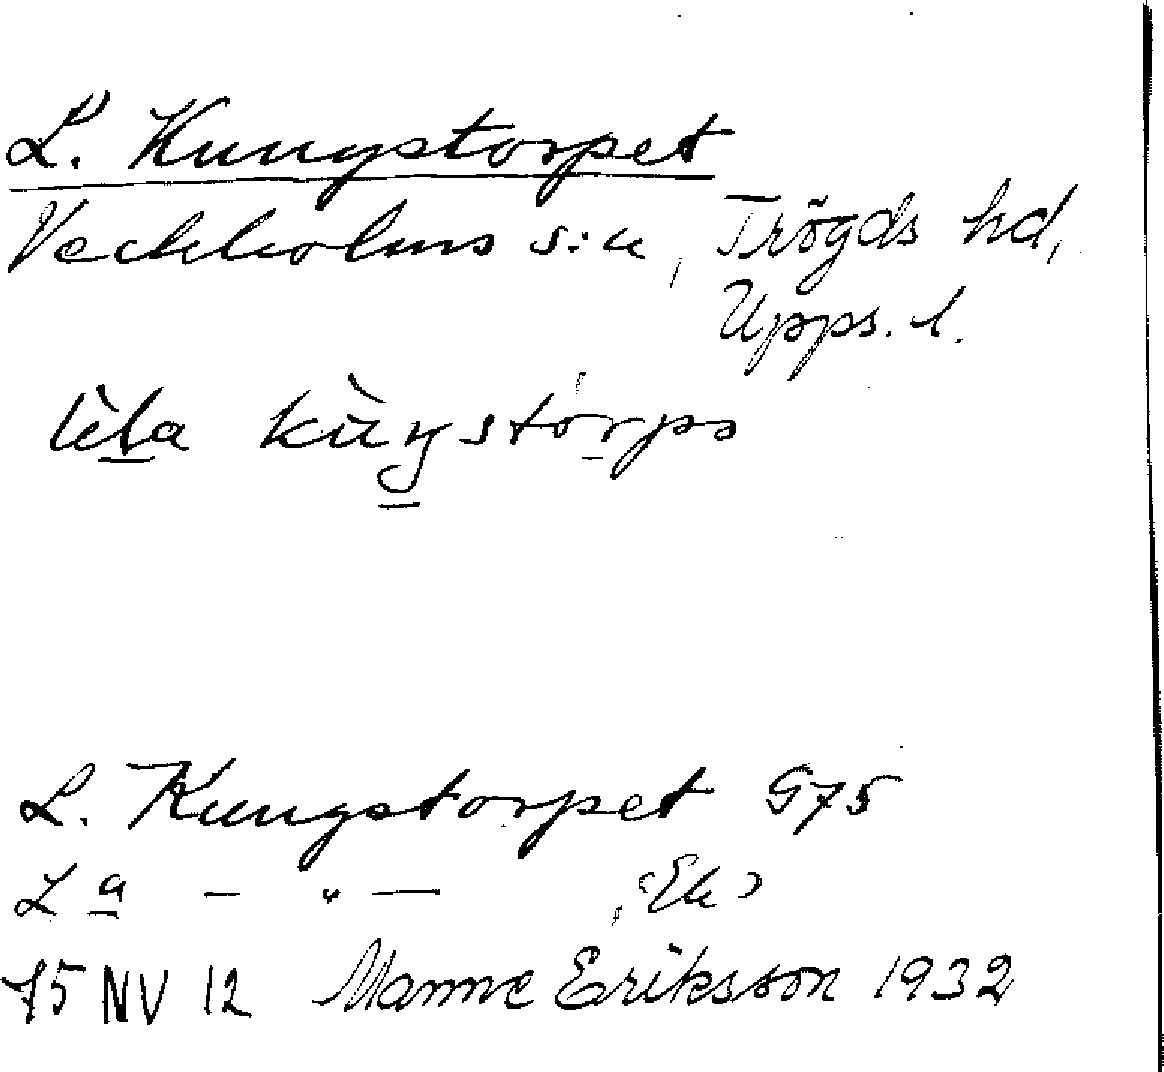 L. Kungstorpet
Veckholms s:n, Trögds hd,
Upps. l.
L. Kungstorpet G75
La — " — (Ek)
75 NV 12 Manne Eriksson 1932